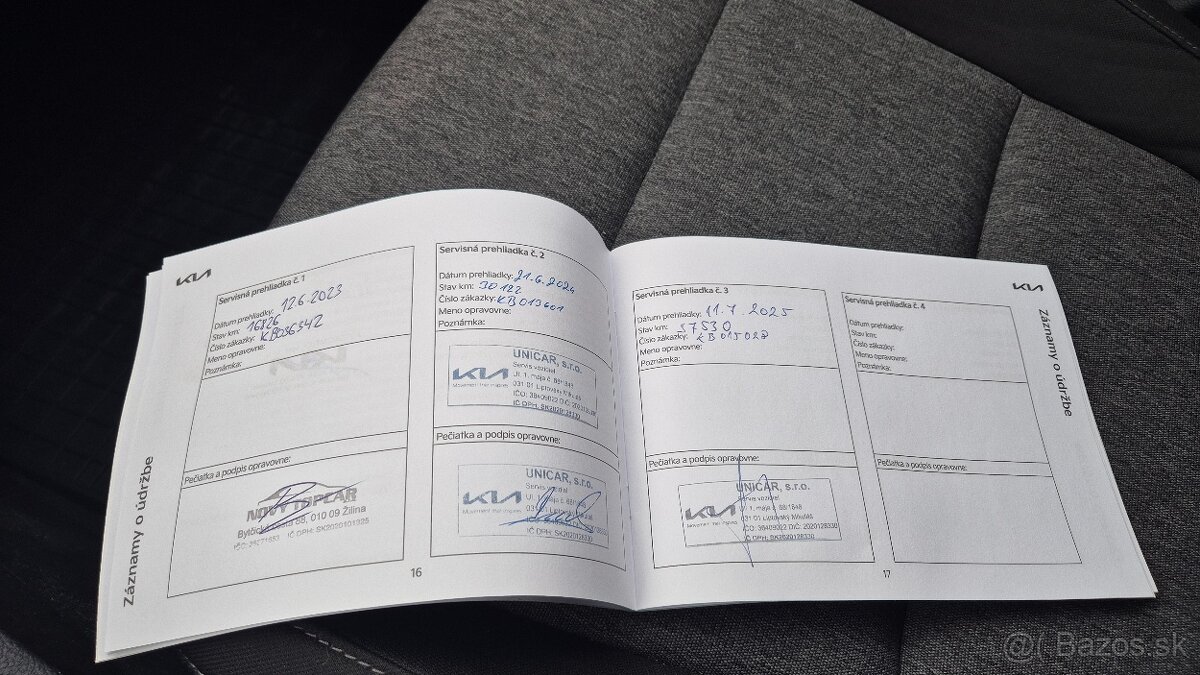 KIA
Servisná prehliadka č. 1
Dátum prehliadky: 12.6.2023
Stav km: 16826
Číslo zákazky: KB036342
Meno opravovne:
Poznámka:
Pečiatka a podpis opravovne:
NOVÝ TOPCAR
Bytčická cesta 88, 010 09 Žilina
IČ DPH: SK2020101325
Záznamy o údržbe
16
Servisná prehliadka č. 2
Dátum prehliadky: 21.6.2024
Stav km: 30182
Číslo zákazky: KB013601
Meno opravovne:
Poznámka:
KIA
Movement that inspires
UNICAR, s.r.o.
Servis vozidiel
Ul. 1. mája č. 68/1848
031 01 Liptovský Mikuláš
IČO: 36409022 DIČ: 2020128330
IČ DPH: SK2020128330
Pečiatka a podpis opravovne:
KIA
Movement that inspires
UNICAR, s.r.o.
Servis vozidiel
Ul. 1. mája č. 68/1848
031 01 Liptovský
IČ DPH: SK2020128330
Servisná prehliadka č. 3
Dátum prehliadky: 11.7.2025
Stav km: 57530
Číslo zákazky: KB015028
Meno opravovne:
Poznámka:
Pečiatka a podpis opravovne:
KIA
Movement that inspires
UNICAR, s.r.o.
Servis vozidiel
Ul. 1. mája č. 68/1848
031 01 Liptovský Mikuláš
IČO: 36409022 DIČ: 2020128330
IČ DPH: SK2020128330
17
Servisná prehliadka č. 4
Dátum prehliadky:
Stav km:
Číslo zákazky:
Meno opravovne:
Poznámka:
Pečiatka a podpis opravovne:
KIA
Záznamy o údržbe
@( Bazos.sk